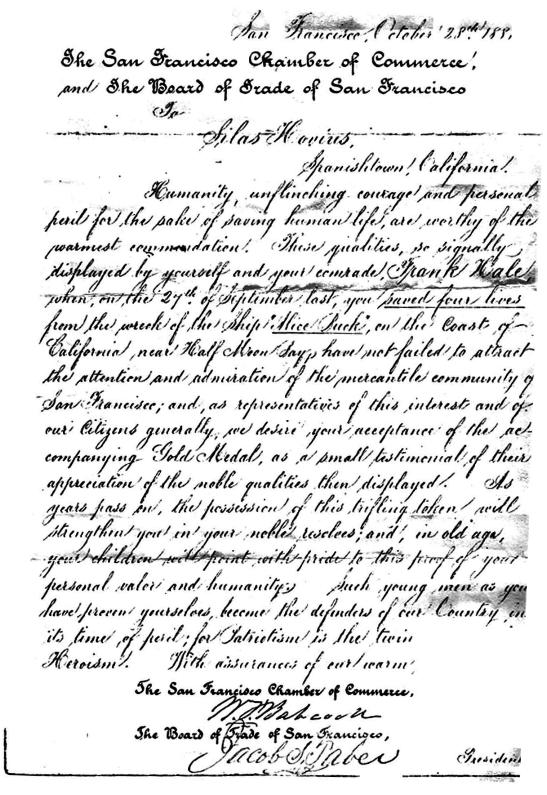 San Francisco, October 28th 188
The San Francisco Chamber of Commerce,
and The Board of Trade of San Francisco
To
Silas Hovious,
Spanishtown, California.
Humanity, unflinching courage and personal
peril for the sake of saving human life, are worthy of the
warmest commendation. These qualities, so signally
displayed by yourself and your comrade Frank Hale
when, on the 27th of September last, you saved four lives
from the wreck of the Ship "Alice Buck", on the Coast of
California, near Half Moon Bay, have not failed to attract
the attention and admiration of the mercantile community of
San Francisco; and, as representatives of this interest and of
our Citizens generally, we desire your acceptance of the ac-
companying Gold Medal, as a small testimonial of their
appreciation of the noble qualities then displayed. As
years pass on, the possession of this trifling token will
strengthen you in your noble resolves; and, in old age,
your children will point with pride to this proof of your
personal valor and humanity. Such young men as you
have proven yourselves, become the defenders of our Country in
its time of peril; for Patriotism is the twin
Heroism. With assurances of our warm
The San Francisco Chamber of Commerce,
W. F. Babcock
The Board of Trade of San Francisco,
Jacob S. Taber
President